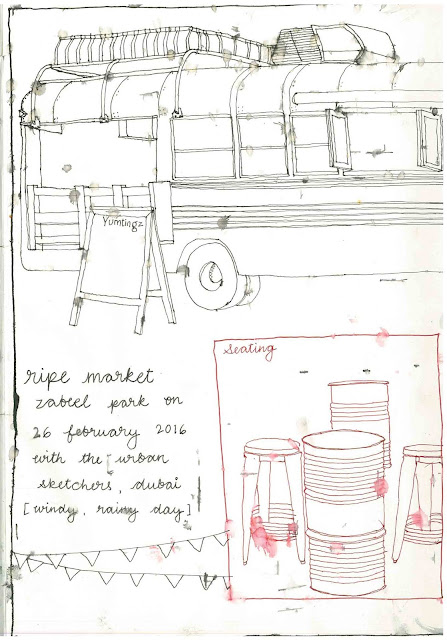 Yumtingz
seating
ripe market
zabeel park on
26 february 2016
with the urban
sketchers, dubai
[windy, rainy day]